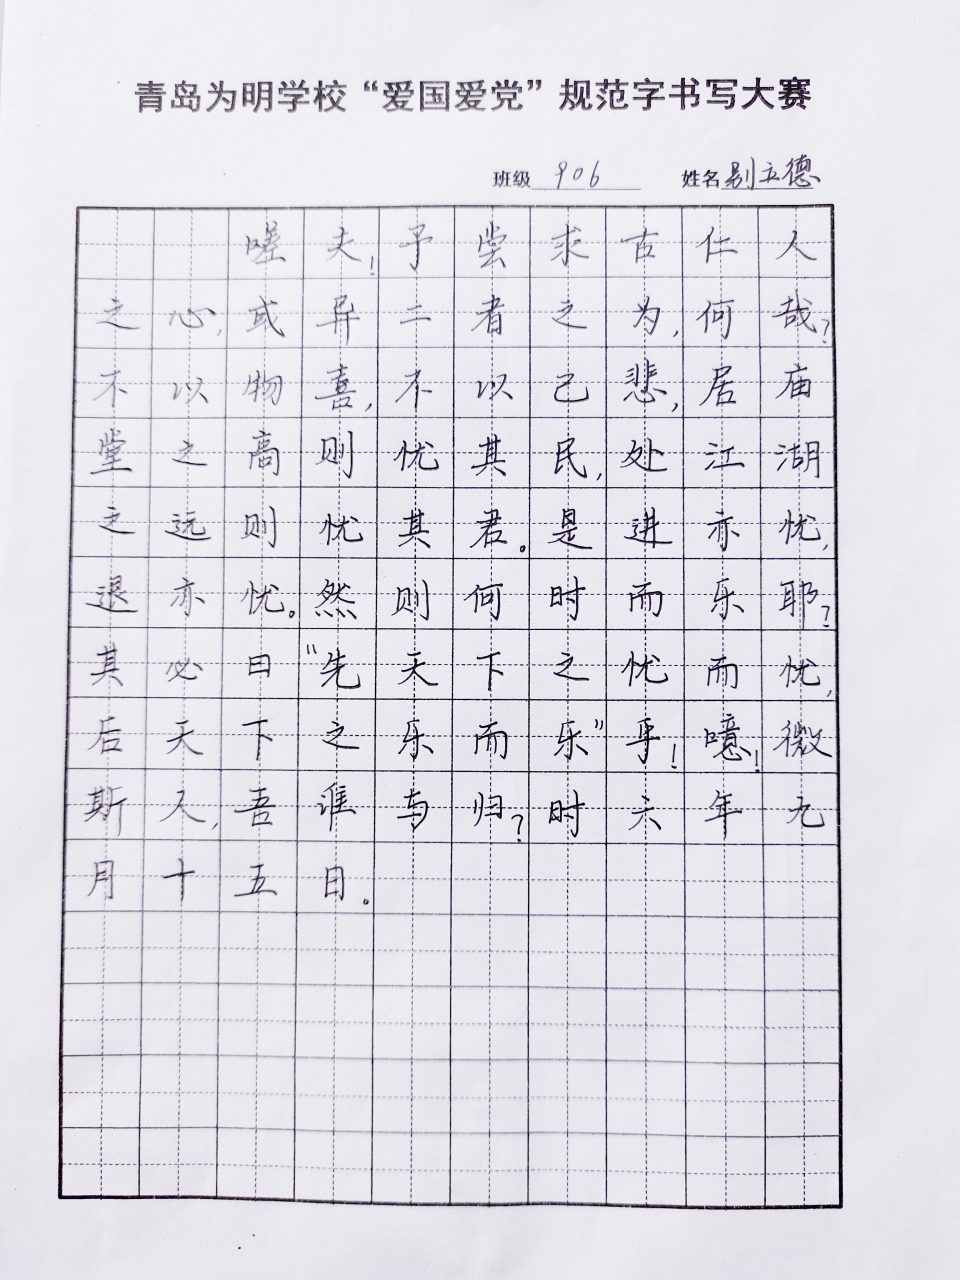 青岛为明学校“爱国爱党”规范字书写大赛
班级 906 姓名 别立德
嗟夫!予尝求古仁人
之心,或异二者之为,何哉?
不以物喜,不以己悲,居庙
堂之高则忧其民,处江湖
之远则忧其君。是进亦忧,
退亦忧。然则何时而乐耶?
其必曰“先天下之忧而忧,
后天下之乐而乐”乎!噫!微
斯人,吾谁与归?时六年九
月十五日。